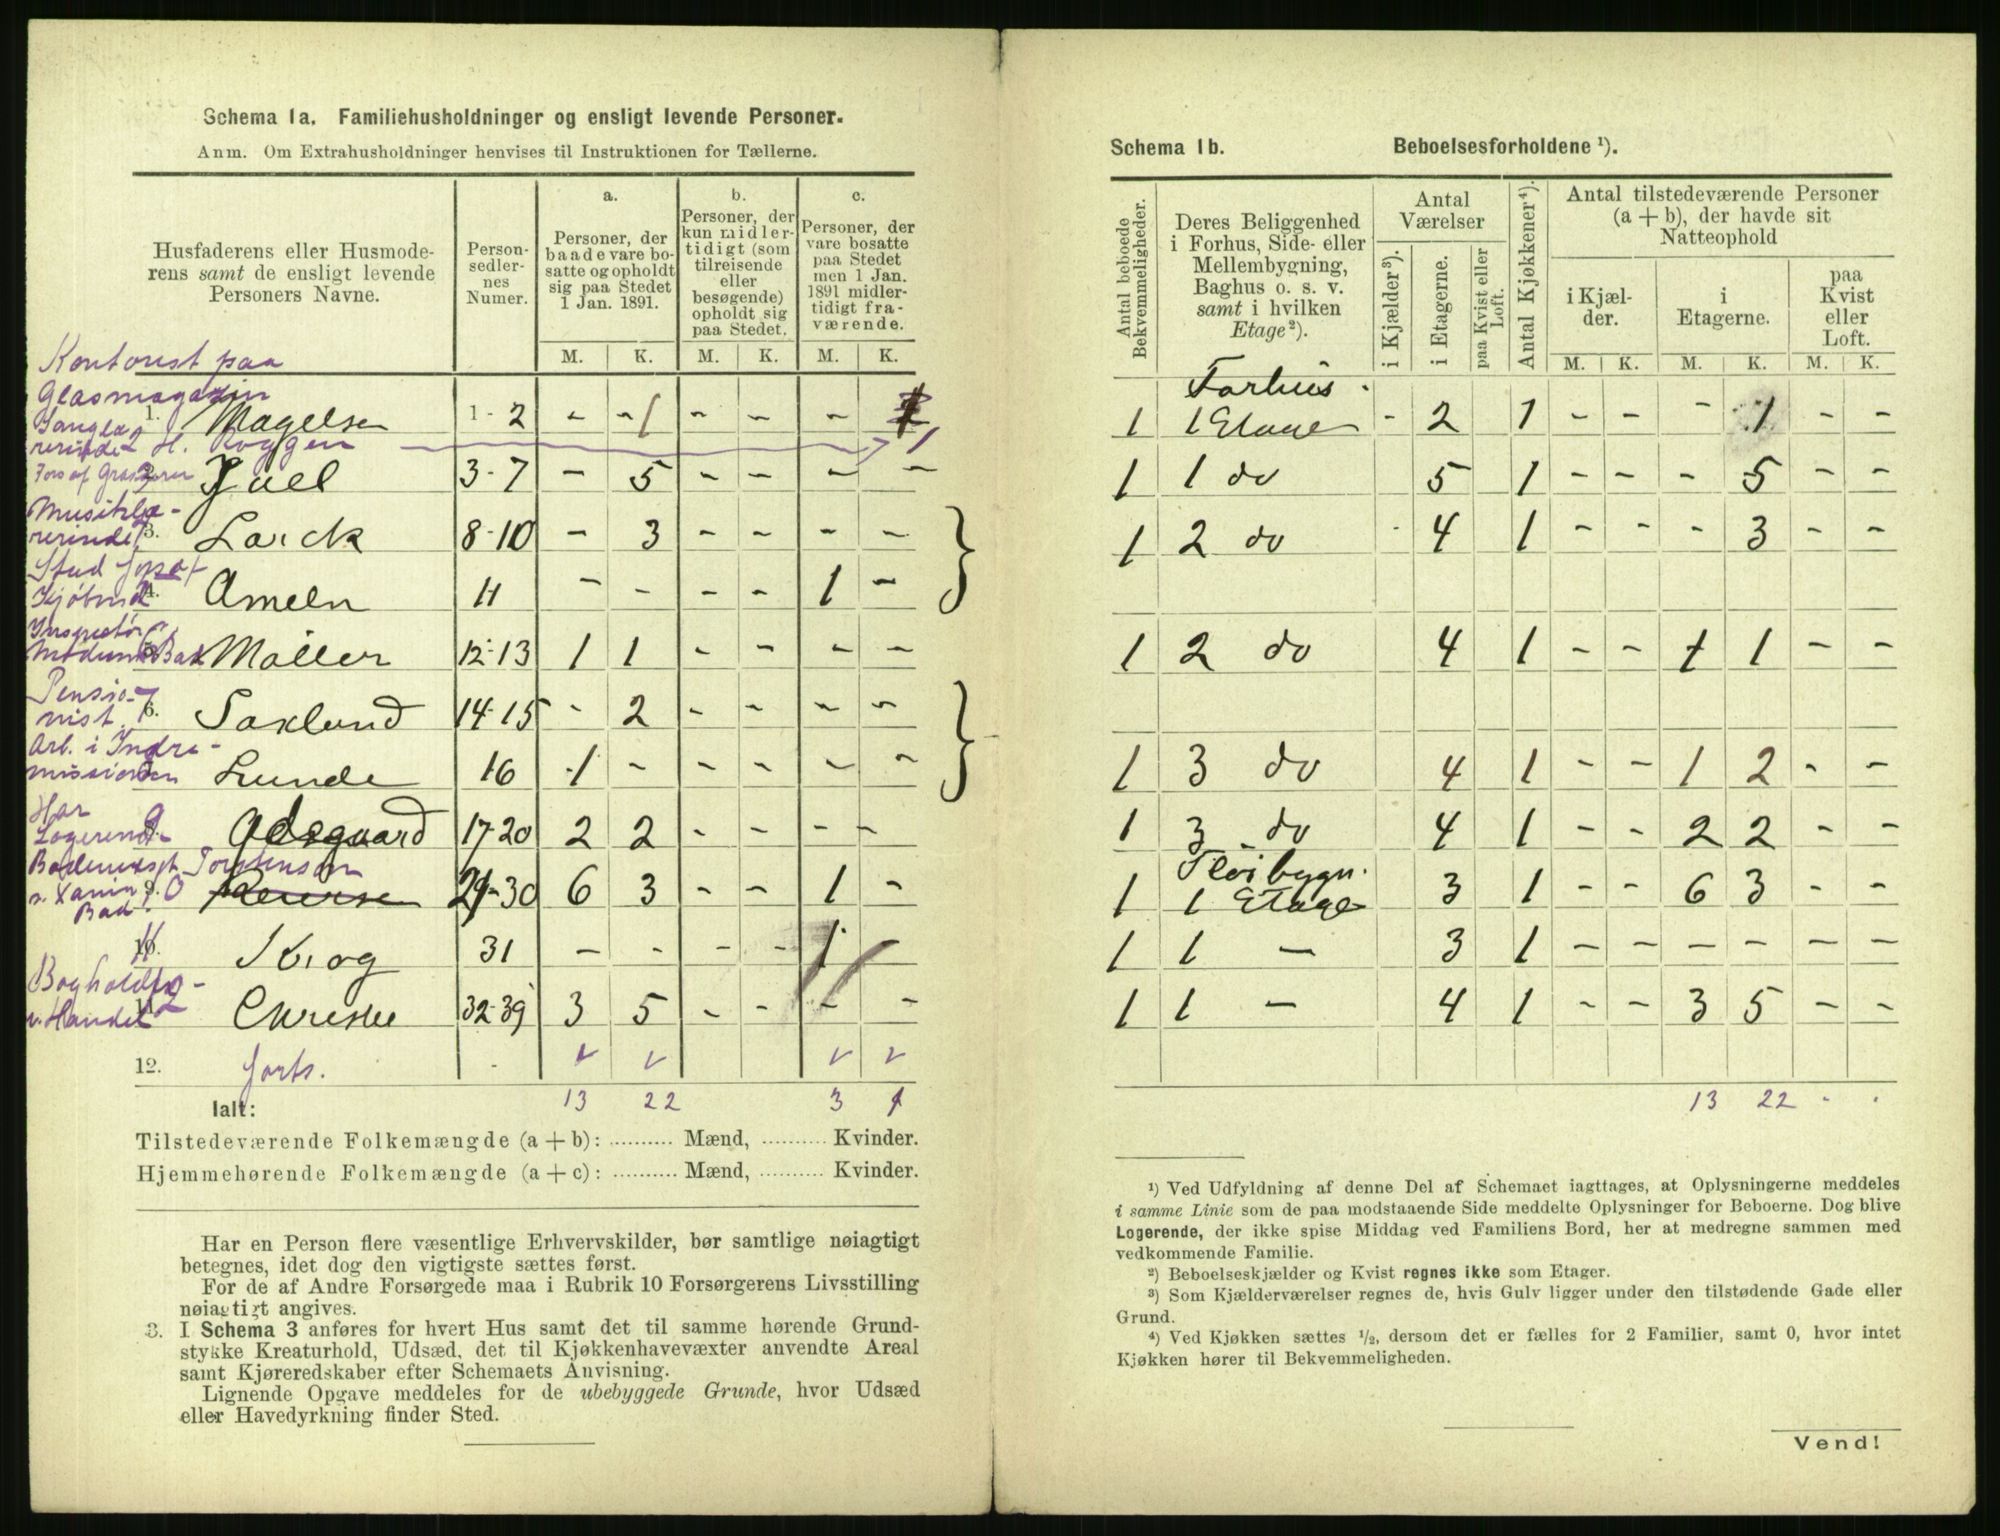 Schema 1a. Familiehusholdninger og ensligt levende Personer.
Anm. Om Extrahusholdninger henvises til Instruktionen for Tællerne.
Husfaderens eller Husmoderens samt de ensligt levende Personers Navne.
Personsedlernes Numer.
a. Personer, der baade vare bosatte og opholdt sig paa Stedet 1 Jan. 1891.
b. Personer, der kun midlertidigt (som tilreisende eller besøgende) opholdt sig paa Stedet.
c. Personer, der vare bosatte paa Stedet men 1 Jan. 1891 midlertidigt fraværende.
M. K. M. K. M. K.
Kontorist paa
Glasmagazin
1. Magelsen 1-2 - - 1 - - -
H. Roggen 1
Juel 3-7 - 5 - - - -
Musiklærerinde
3. Larck 8-10 - 3 - - - -
Stud
4. Ameln 11 - - - - 1 -
Inspectør
Modums Bad Møller 12-13 1 1 - - - -
Pensionist 7
6. Saxlund 14-15 - 2 - - - -
Arb. i Indremissionen
Lunde 16 1 - - - - -
Har
Logerende 9
Adsgaard 17-20 2 2 - - - -
Torstensen
Bad.
9. 21-30 6 3 - - 1 -
10. Krog 31 - - - - 1 -
Bogholder
v. Handel
11. Christie 32-39 3 5 - - - -
12. Forts.
Ialt: 13 22 3 1
Tilstedeværende Folkemængde (a + b): .......... Mænd, .......... Kvinder.
Hjemmehørende Folkemængde (a + c): .......... Mænd, .......... Kvinder.
Har en Person flere væsentlige Erhvervskilder, bør samtlige nøiagtigt
betegnes, idet dog den vigtigste sættes først.
For de af Andre Forsørgede maa i Rubrik 10 Forsørgerens Livsstilling
nøiagtigt angives.
3. I Schema 3 anføres for hvert Hus samt det til samme hørende Grund-
stykke Kreaturhold, Udsæd, det til Kjøkkenhavevæxter anvendte Areal
samt Kjøreredskaber efter Schemaets Anvisning.
Lignende Opgave meddeles for de ubebyggede Grunde, hvor Udsæd
eller Havedyrkning finder Sted.
Schema 1b. Beboelsesforholdene ¹).
Antal beboede Bekvemmeligheder.
Deres Beliggenhed i Forhus, Side- eller Mellembygning, Baghus o. s. v. samt i hvilken Etage ²).
Antal Værelser
i Kjælder ³).
i Etagerne.
paa Kvist eller Loft.
Antal Kjøkkener ⁴).
Antal tilstedeværende Personer (a + b), der havde sit Natteophold
i Kjælder.
i Etagerne.
paa Kvist eller Loft.
M. K. M. K. M. K.
Forhus.
1 1 Etage - 2 1 - - - 1 - -
1 1 do 5 1 - - - 5 - -
1 2 do 4 1 - - - 3 - -
1 2 do 4 1 - - 1 1 - -
1 3 do 4 1 - - 1 2 - -
1 3 do 4 1 - - 2 2 - -
Fløibygn.
1 1 Etage 3 1 - - 6 3 - -
1 1 - 3 1 - - - - - -
1 1 - 4 1 - - 3 5 - -
13 22 - -
¹) Ved Udfyldning af denne Del af Schemaet iagttages, at Oplysningerne meddeles
i samme Linie som de paa modstaaende Side meddelte Oplysninger for Beboerne. Dog blive
Logerende, der ikke spise Middag ved Familiens Bord, her at medregne sammen med
vedkommende Familie.
²) Beboelseskjælder og Kvist regnes ikke som Etager.
³) Som Kjælderværelser regnes de, hvis Gulv ligger under den tilstødende Gade eller
Grund.
⁴) Ved Kjøkken sættes ½, dersom det er fælles for 2 Familier, samt 0, hvor intet
Kjøkken hører til Bekvemmeligheden.
Vend!